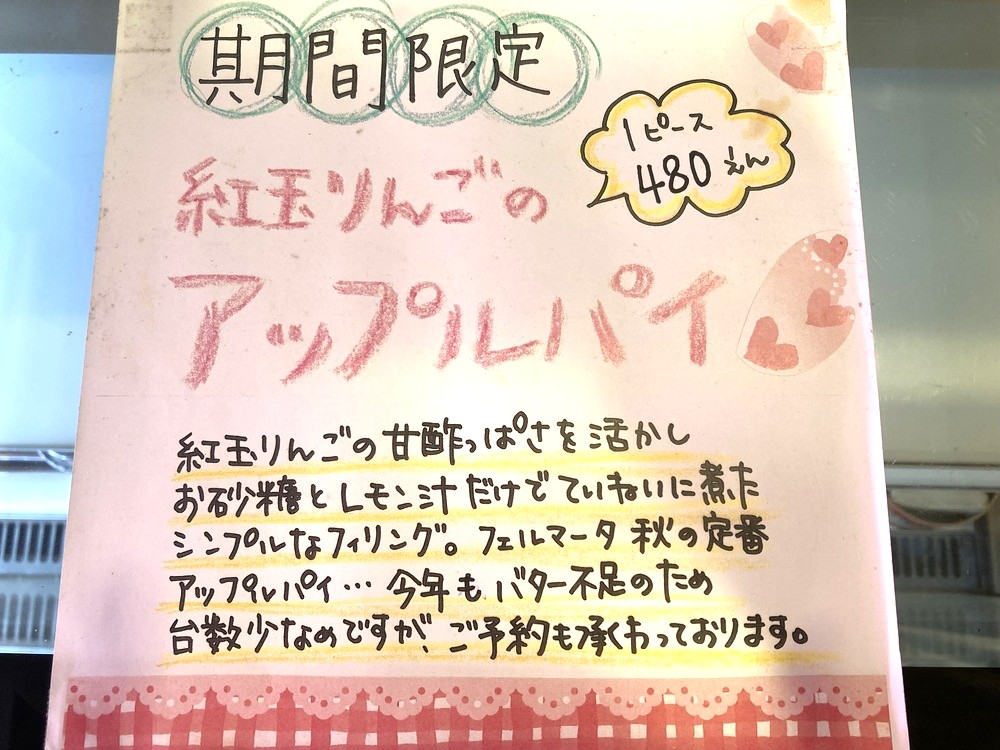 期間限定
1ピース
480えん
紅玉りんごの
アップルパイ
紅玉りんごの甘酸っぱさを活かし
お砂糖とレモン汁だけでていねいに煮た
シンプルなフィリング。フェルマータ 秋の定番
アップルパイ… 今年も バター不足のため
台数少なめですが、ご予約も承くわっております。